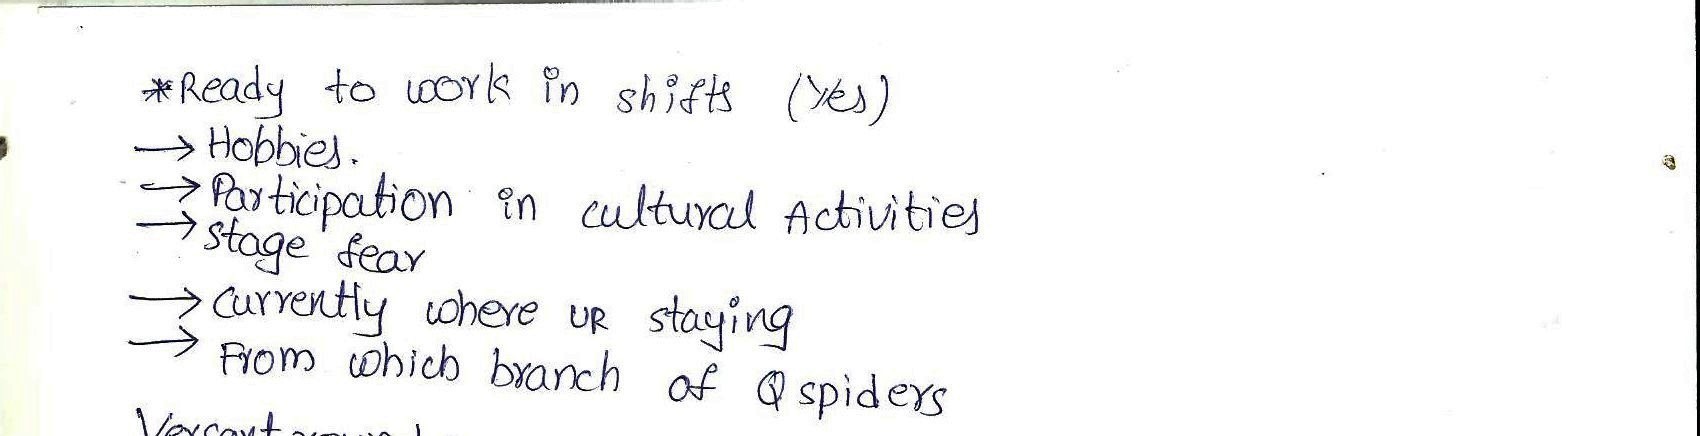 *Ready to work in shifts (Yes)
→ Hobbies.
→ Participation in cultural Activities
→ stage fear
→ Currently where UR staying
→ From which branch of Qspiders